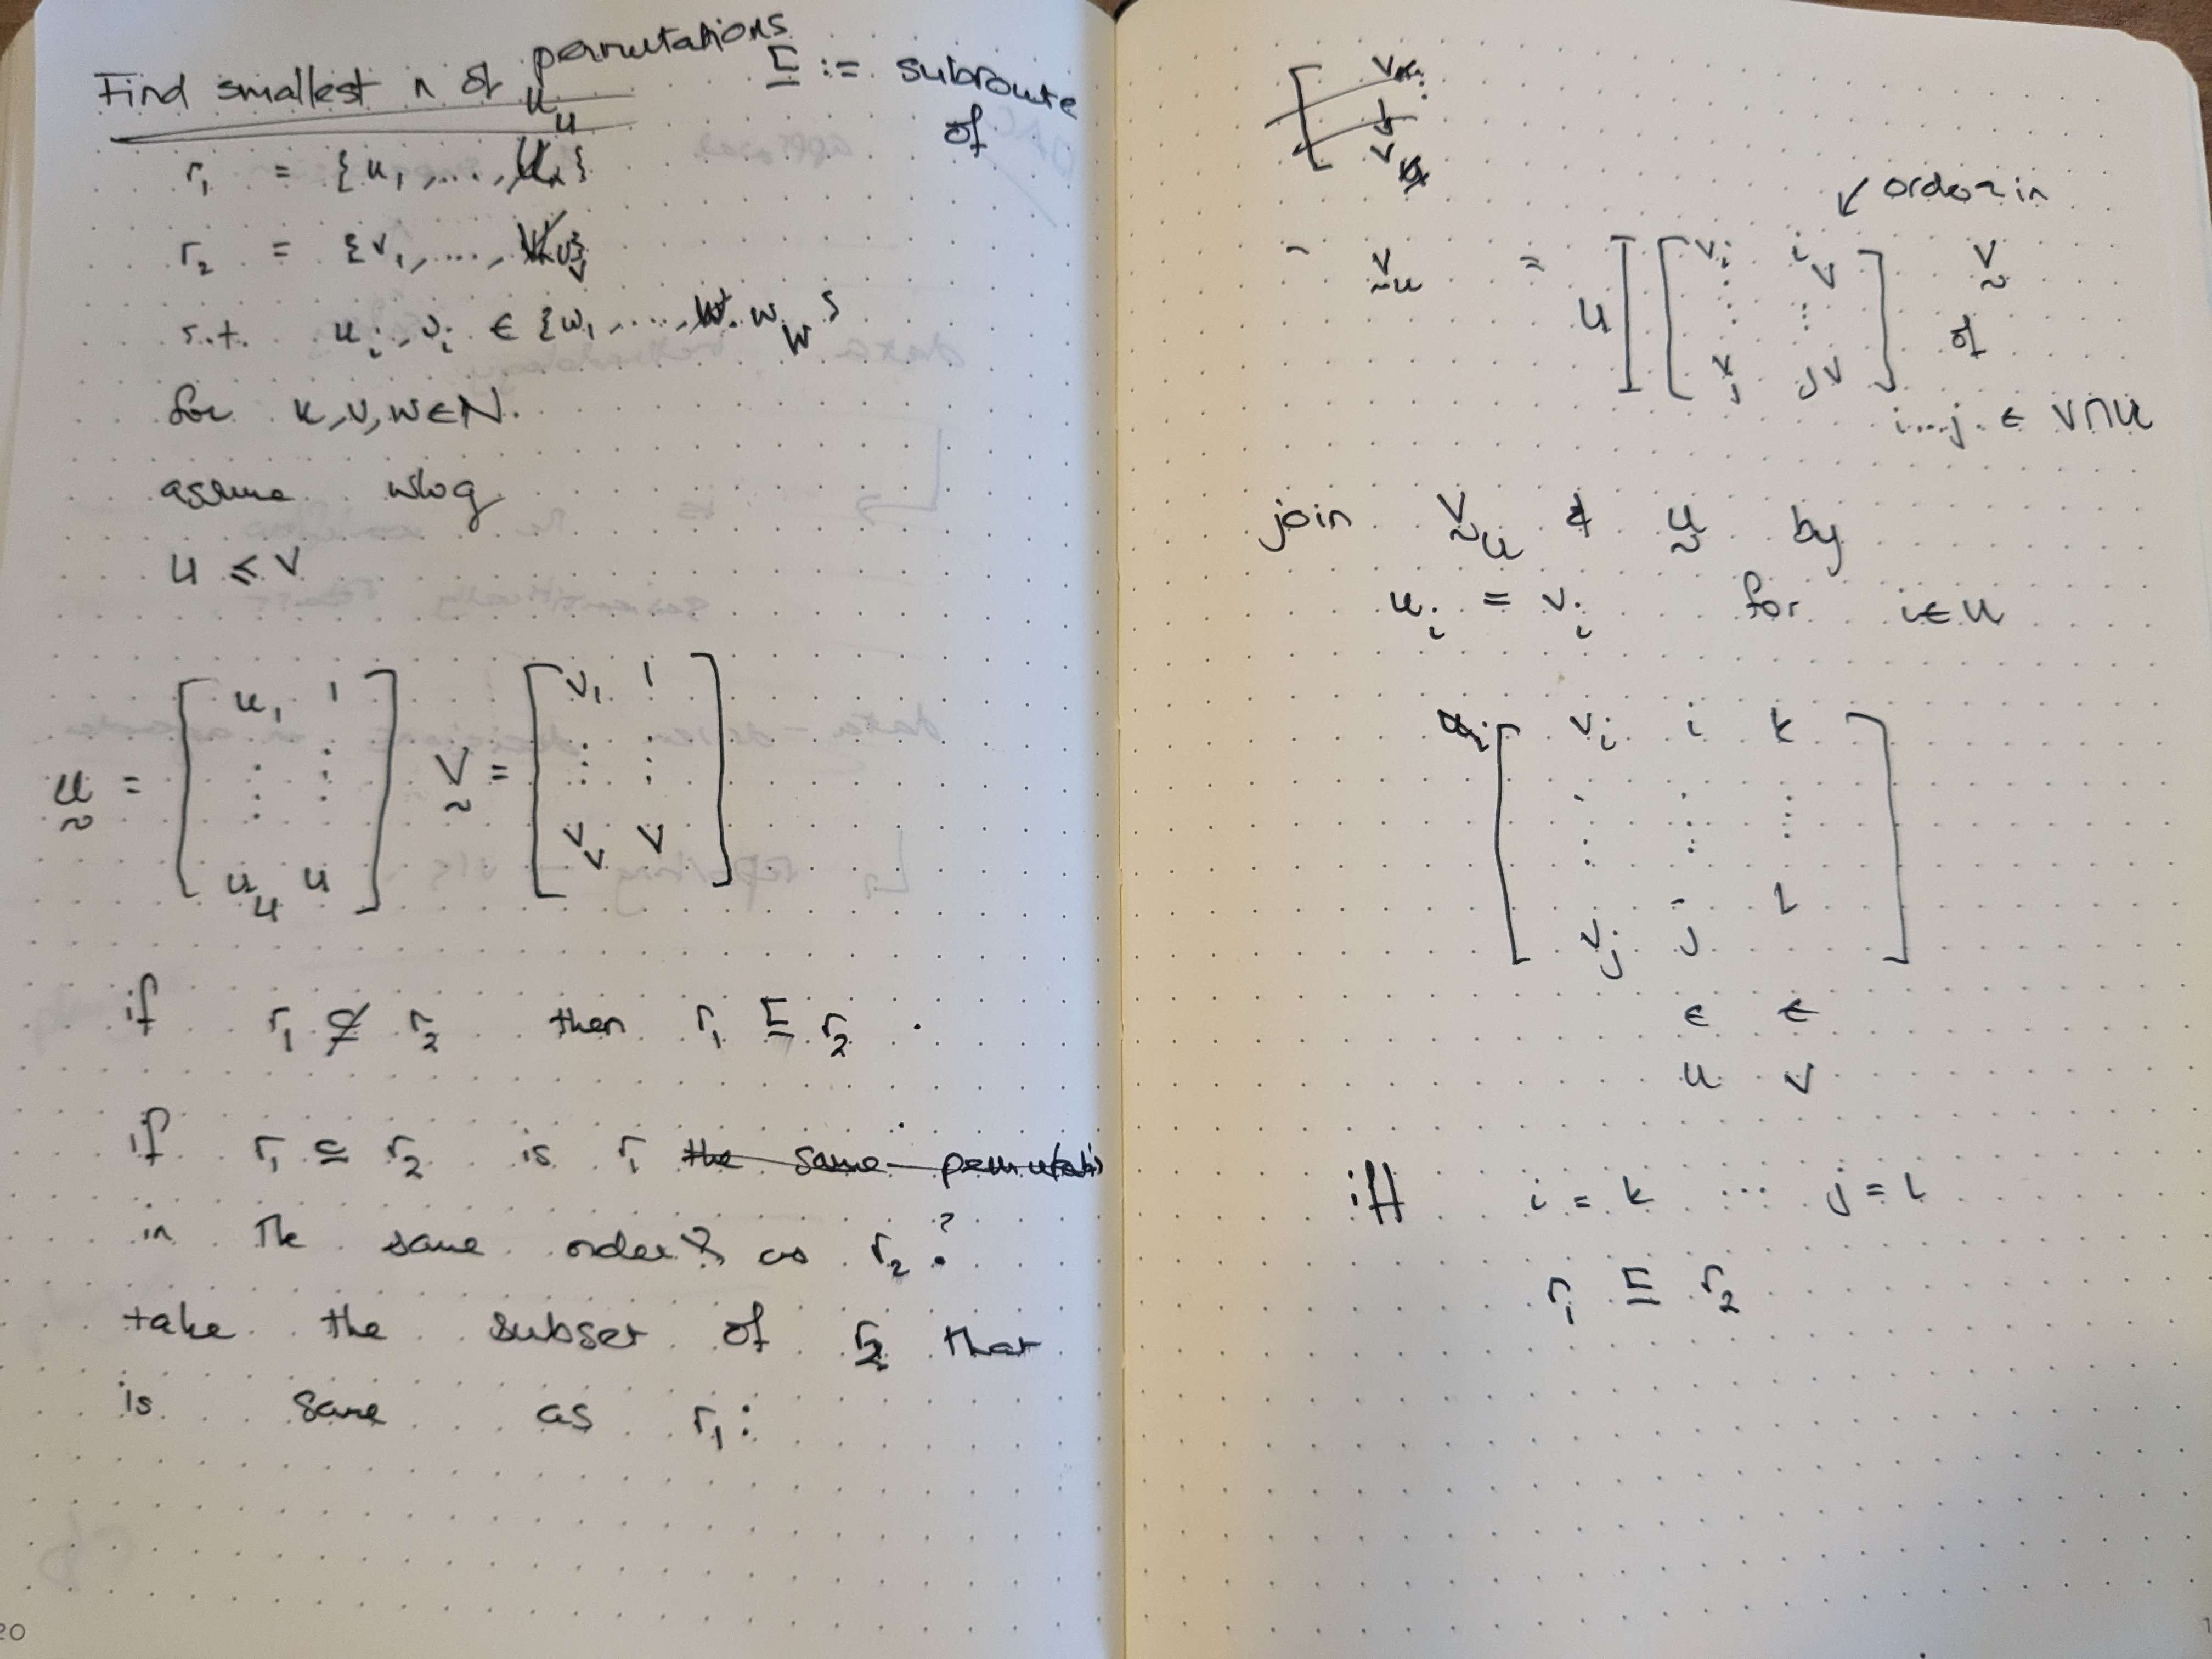 Find smallest n of permutations
⊑ := subroute of
r₁ = {u₁, ..., u_u}
r₂ = {v₁, ..., v_v}
s.t. uᵢ, vᵢ ∈ {w₁, ..., w_w}
for u, v, w ∈ N.
assume wlog
u ≤ v
u = [ u₁ 1 ⋮ ⋮ u_u u ] v = [ v₁ 1 ⋮ ⋮ v_v v ]
if r₁ ⊄ r₂ then r₁ ⊑ r₂ .
if r₁ ⊆ r₂ is r₁ the same permutatio
in the same order as r₂ ?
take the subset of r₂ that
is same as r₁ :
order in
v_u = u [ vᵢ i_v ⋮ ⋮ vⱼ j_v ] v
of
i...j ∈ v∩u
join v_u & u by
uᵢ = vᵢ for i ∈ u
[ vᵢ i k
⋮ ⋮ ⋮
vⱼ j l ]
∈ ∈
u v
iff i = k ... j = l
r₁ ⊑ r₂
20